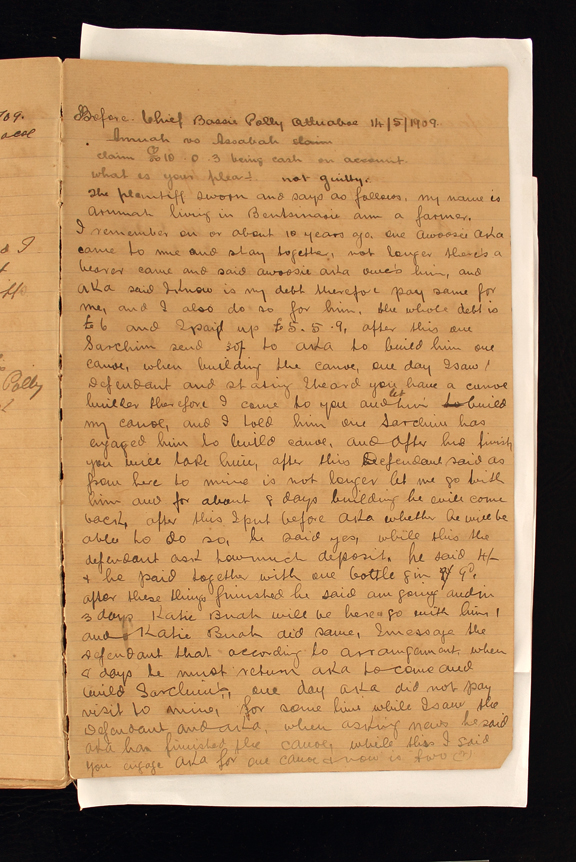 709.
d I
Polly
Before Chief Bassie Polly Attuaboe 14/5/1909
Amuah vs Assabah claim
claim £10 . 0 . 3 being cash on account.
what is your plea? not guilty.
The plaintiff sworn and says as follows. my name is
Ammah living in Bentsinasie am a farmer.
I remember on or about 10 years go. one Awoosie Aka
came to me and stay together, not longer there's a
bearer came and said Awoosie Aka owe's him, and
Aka said I know is my debt therefore pay same for
me, and I also do so for him. the whole debt is
£6 and I paid up £5.5.9, after this one
Sarchim send 30/ to Aka to build him one
canoe, when building the canoe, one day I saw
Defendant and stating I heard you have a canoe
builder therefore I come to you and let him to build
my canoe, and I told him one Sarchim has
engaged him to build canoe, and after he finish
you will take him, after this Defendant said as
from here to mine is not longer let me go with
him and for about 8 days building he will come
back, after this I put before Aka whether he will be
able to do so, he said yes, while this the
defendant ask how much deposit, he said 4/-
& he paid together with one bottle gin 9d.
after these things finished he said am going and in
3 days Katie Buah will be here go with him,
and Katie Buah did same, I message the
defendant that according to arrangement when
8 days he must return Aka to come and
build Sarchim's, one day Aka did not pay
visit to mine, for some time while I saw the
Defendant and Aka, when asking news he said
Aka has finished the canoe, while this I said
you engage Aka for one canoe & now is two